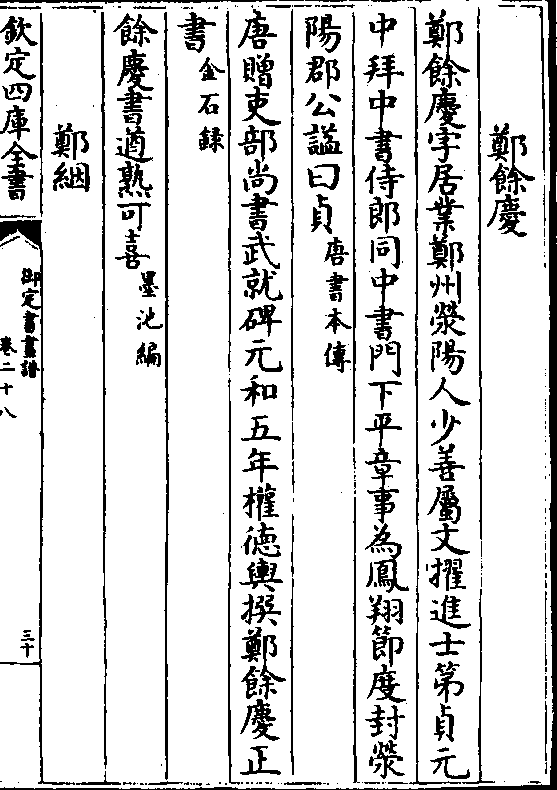 鄭餘慶
鄭餘慶字居業鄭州滎陽人少善屬文擢進士第貞元
中拜中書侍郎同中書門下平章事為鳳翔節度封滎
陽郡公諡曰貞唐書本傳
唐贈吏部尚書武就碑元和五年權德輿撰鄭餘慶正
書金石録
餘慶書遒熟可喜墨池編
鄭絪
欽定四庫全書
御定書畫譜
卷二十八
三十